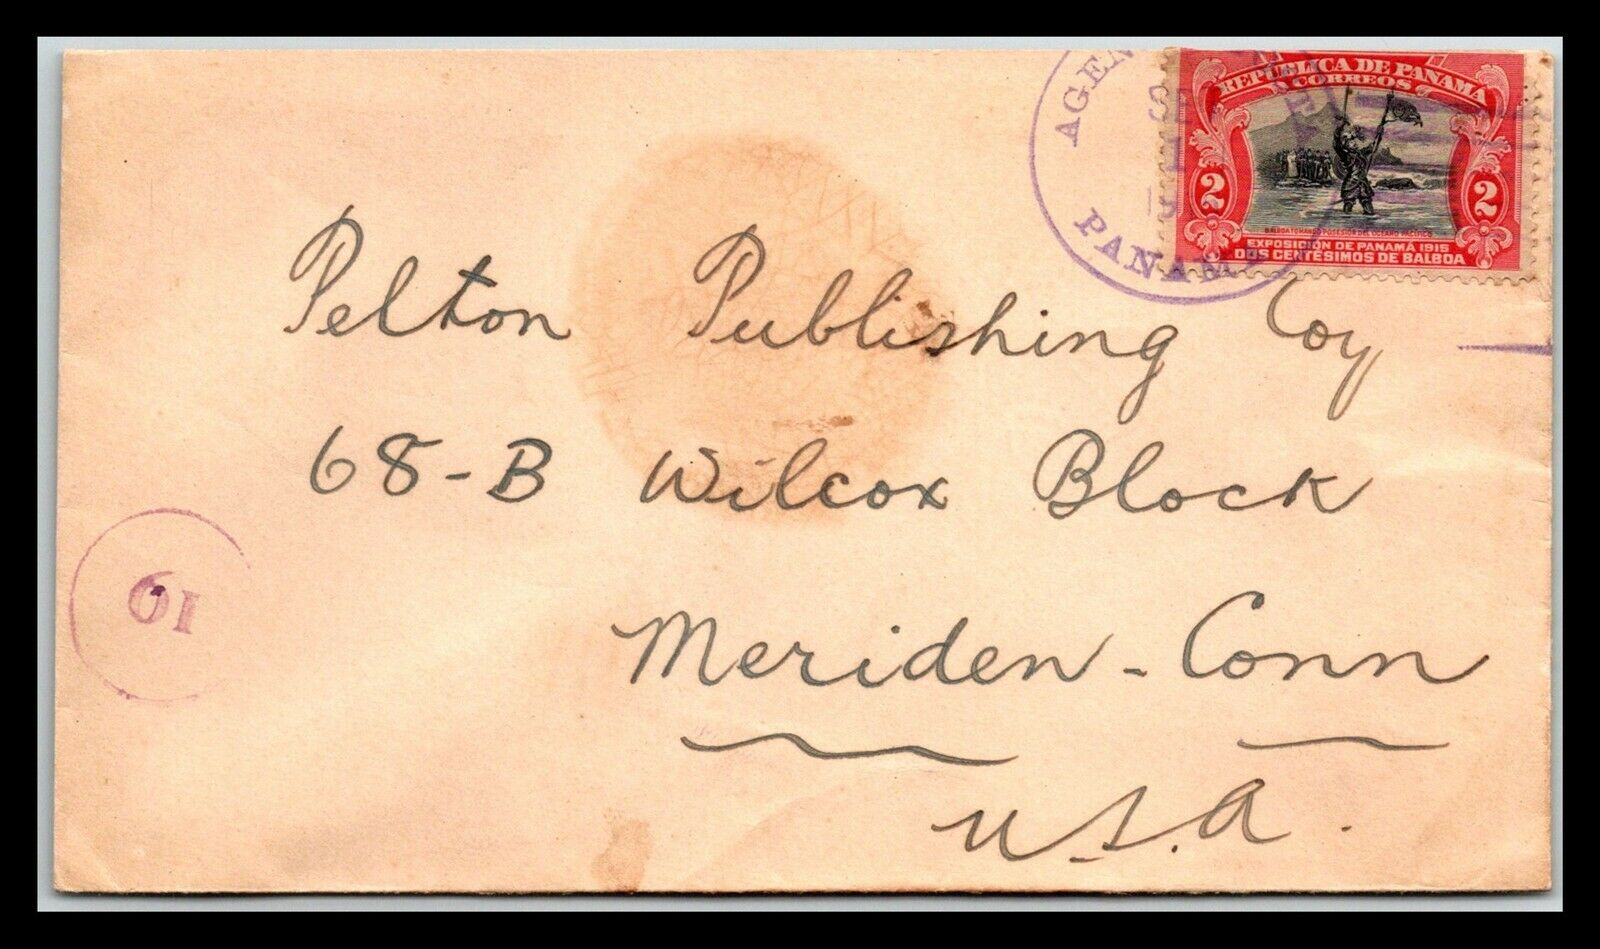 REPÚBLICA DE PANAMA
CORREOS
2 2
BALBOA TOMANDO POSESIÓN DEL OCEANO PACIFICO
EXPOSICIÓN DE PANAMÁ 1915
DOS CENTÉSIMOS DE BALBOA
PANAMA
Pelton Publishing Coy
68-B Wilcox Block
Meriden - Conn
U.S.A.